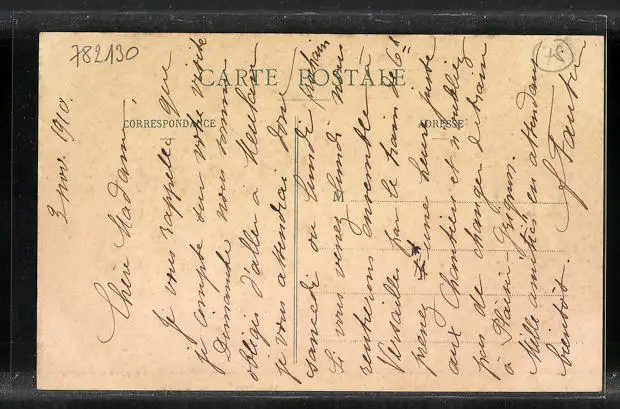 782130
CARTE POSTALE
CORRESPONDANCE
ADRESSE
M
3 nov. 1910.
Chère Madame,
Je vous rappelle que
je compte sur votre visite
Dimanche nous sommes
obligés d'aller à Meulan
je vous attendrai donc
samedi ou lundi prochain
Si vous venez lundi nous
rentrerions ensemble à
Versailles par le train de 6h
prenez une heure juste
aux Chantiers et n'oubliez
pas de changer de train
à Plaisir-Grignon.
Mille amitiés en attendant
bientôt.